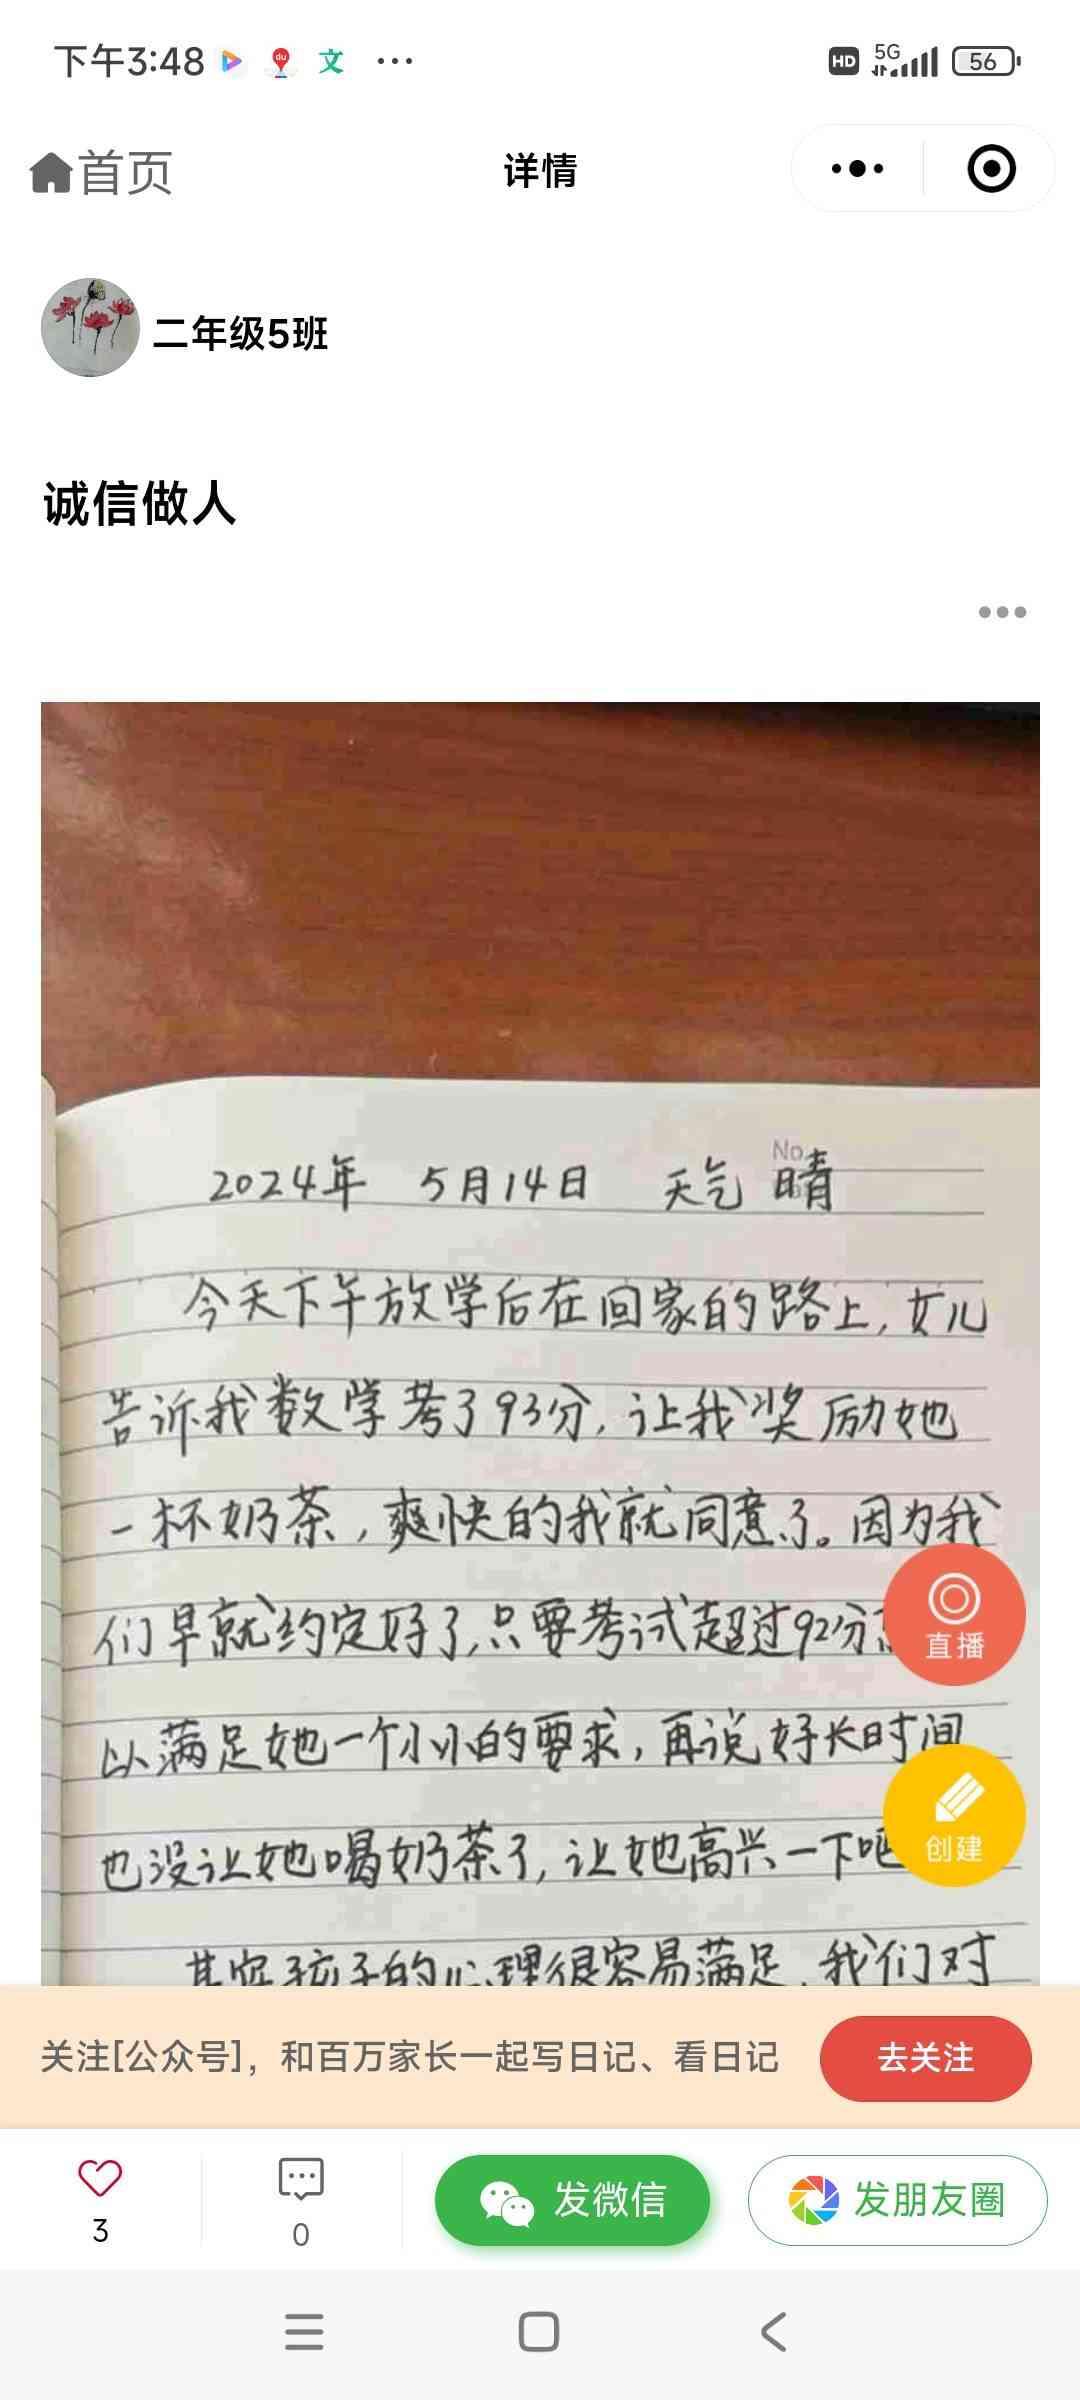 下午3:48
HD 5G 56
首页
详情
二年级5班
诚信做人
No
2024年 5月14日 天气 晴
今天下午放学后在回家的路上,女儿
告诉我数学考了93分,让我奖励她
一杯奶茶,爽快的我就同意了。因为我
们早就约定好了,只要考试超过92分
直播
以满足她一个小小的要求,再说好长时间
也没让她喝奶茶了,让她高兴一下吧
创建
其实孩子的心理很容易满足,我们对
关注[公众号],和百万家长一起写日记、看日记
去关注
3
0
发微信
发朋友圈